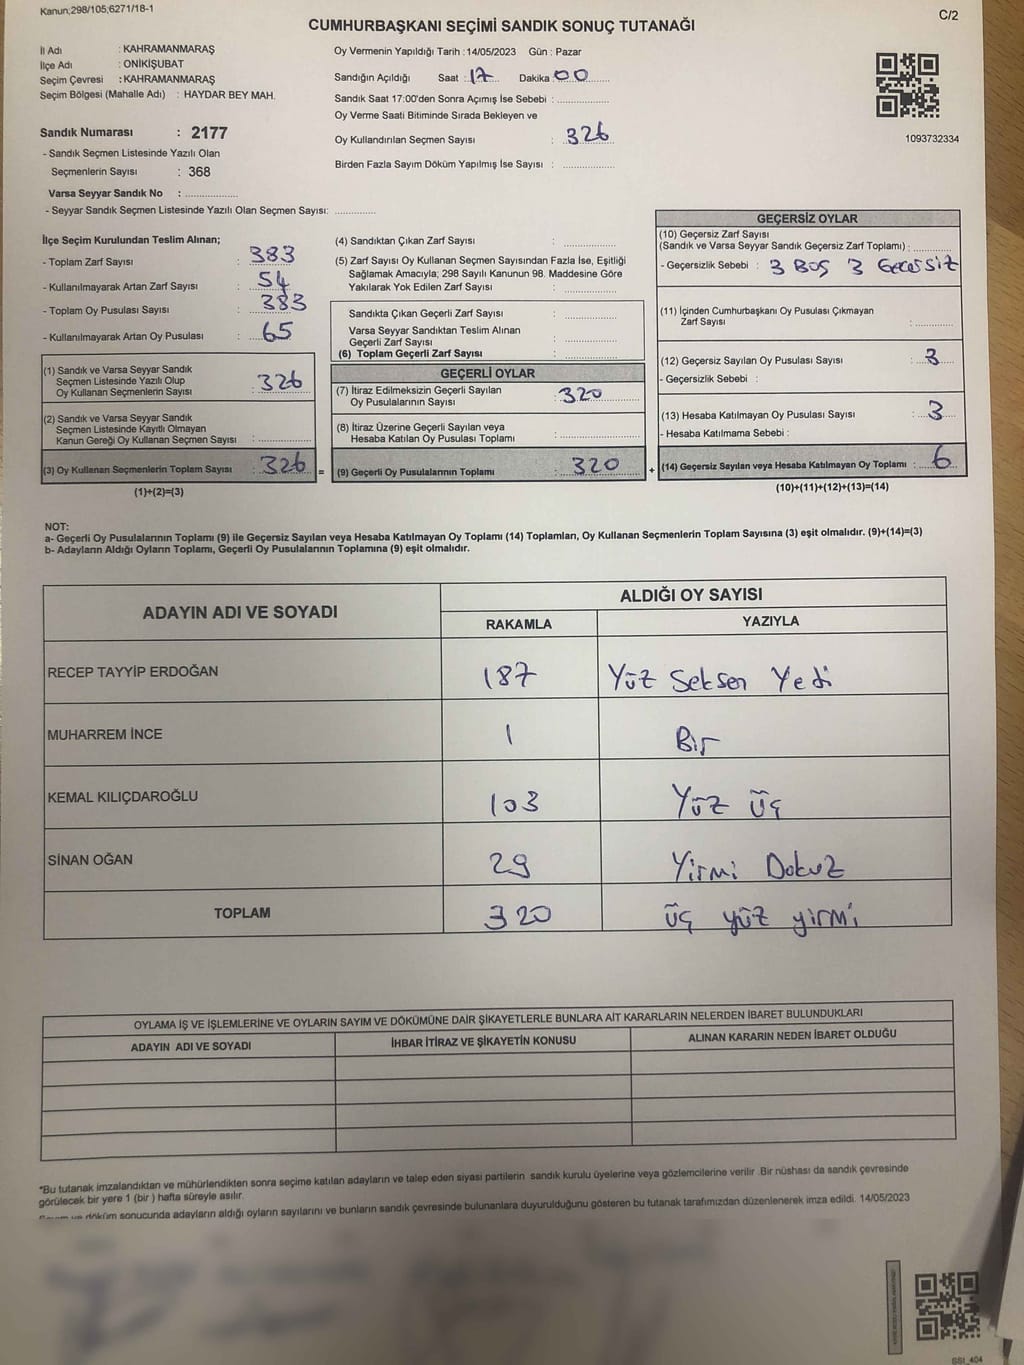 Kanun;298/105;6271/18-1
C/2
CUMHURBAŞKANI SEÇİMİ SANDIK SONUÇ TUTANAĞI
İl Adı : KAHRAMANMARAŞ
İlçe Adı : ONİKİŞUBAT
Seçim Çevresi : KAHRAMANMARAŞ
Seçim Bölgesi (Mahalle Adı) : HAYDAR BEY MAH.
Oy Vermenin Yapıldığı Tarih : 14/05/2023 Gün : Pazar
Sandığın Açıldığı Saat : 17 Dakika 00
Sandık Saat 17:00'den Sonra Açımış İse Sebebi :
Oy Verme Saati Bitiminde Sırada Bekleyen ve
Oy Kullandırılan Seçmen Sayısı : 326
Birden Fazla Sayım Döküm Yapılmış İse Sayısı :
1093732334
Sandık Numarası : 2177
- Sandık Seçmen Listesinde Yazılı Olan
Seçmenlerin Sayısı : 368
Varsa Seyyar Sandık No :
- Seyyar Sandık Seçmen Listesinde Yazılı Olan Seçmen Sayısı:
İlçe Seçim Kurulundan Teslim Alınan;
- Toplam Zarf Sayısı : 383
- Kullanılmayarak Artan Zarf Sayısı : 54
- Toplam Oy Pusulası Sayısı : 383
- Kullanılmayarak Artan Oy Pusulası : 65
(1) Sandık ve Varsa Seyyar Sandık
Seçmen Listesinde Yazılı Olup
Oy Kullanan Seçmenlerin Sayısı : 326
(2) Sandık ve Varsa Seyyar Sandık
Seçmen Listesinde Kayıtlı Olmayan
Kanun Gereği Oy Kullanan Seçmen Sayısı :
(3) Oy Kullanan Seçmenlerin Toplam Sayısı : 326 =
(1)+(2)=(3)
(4) Sandıktan Çıkan Zarf Sayısı :
(5) Zarf Sayısı Oy Kullanan Seçmen Sayısından Fazla İse, Eşitliği
Sağlamak Amacıyla; 298 Sayılı Kanunun 98. Maddesine Göre
Yakılarak Yok Edilen Zarf Sayısı :
Sandıkta Çıkan Geçerli Zarf Sayısı :
Varsa Seyyar Sandıktan Teslim Alınan
Geçerli Zarf Sayısı :
(6) Toplam Geçerli Zarf Sayısı :
GEÇERLİ OYLAR
(7) İtiraz Edilmeksizin Geçerli Sayılan
Oy Pusulalarının Sayısı : 320
(8) İtiraz Üzerine Geçerli Sayılan veya
Hesaba Katılan Oy Pusulası Toplamı :
(9) Geçerli Oy Pusulalarının Toplamı : 320 +
GEÇERSİZ OYLAR
(10) Geçersiz Zarf Sayısı
(Sandık ve Varsa Seyyar Sandık Geçersiz Zarf Toplamı) :
- Geçersizlik Sebebi : 3 Boş 3 Geçersiz
(11) İçinden Cumhurbaşkanı Oy Pusulası Çıkmayan
Zarf Sayısı :
(12) Geçersiz Sayılan Oy Pusulası Sayısı : 3
- Geçersizlik Sebebi :
(13) Hesaba Katılmayan Oy Pusulası Sayısı : 3
- Hesaba Katılmama Sebebi :
(14) Geçersiz Sayılan veya Hesaba Katılmayan Oy Toplamı : 6
(10)+(11)+(12)+(13)=(14)
NOT:
a- Geçerli Oy Pusulalarının Toplamı (9) ile Geçersiz Sayılan veya Hesaba Katılmayan Oy Toplamı (14) Toplamları, Oy Kullanan Seçmenlerin Toplam Sayısına (3) eşit olmalıdır. (9)+(14)=(3)
b- Adayların Aldığı Oyların Toplamı, Geçerli Oy Pusulalarının Toplamına (9) eşit olmalıdır.
ADAYIN ADI VE SOYADI
ALDIĞI OY SAYISI
RAKAMLA YAZIYLA
RECEP TAYYİP ERDOĞAN 187 Yüz Seksen Yedi
MUHARREM İNCE 1 Bir
KEMAL KILIÇDAROĞLU 103 Yüz Üç
SİNAN OĞAN 29 Yirmi Dokuz
TOPLAM 320 üç yüz yirmi
OYLAMA İŞ VE İŞLEMLERİNE VE OYLARIN SAYIM VE DÖKÜMÜNE DAİR ŞİKAYETLERLE BUNLARA AİT KARARLARIN NELERDEN İBARET BULUNDUKLARI
ADAYIN ADI VE SOYADI İHBAR İTİRAZ VE ŞİKAYETİN KONUSU ALINAN KARARIN NEDEN İBARET OLDUĞU
*Bu tutanak imzalandıktan ve mühürlendikten sonra seçime katılan adayların ve talep eden siyasi partilerin sandık kurulu üyelerine veya gözlemcilerine verilir .Bir nüshası da sandık çevresinde
görülecek bir yere 1 (bir ) hafta süreyle asılır.
Sayım ve döküm sonucunda adayların aldığı oyların sayılarını ve bunların sandık çevresinde bulunanlara duyurulduğunu gösteren bu tutanak tarafımızdan düzenlenerek imza edildi. 14/05/2023
SSI_404